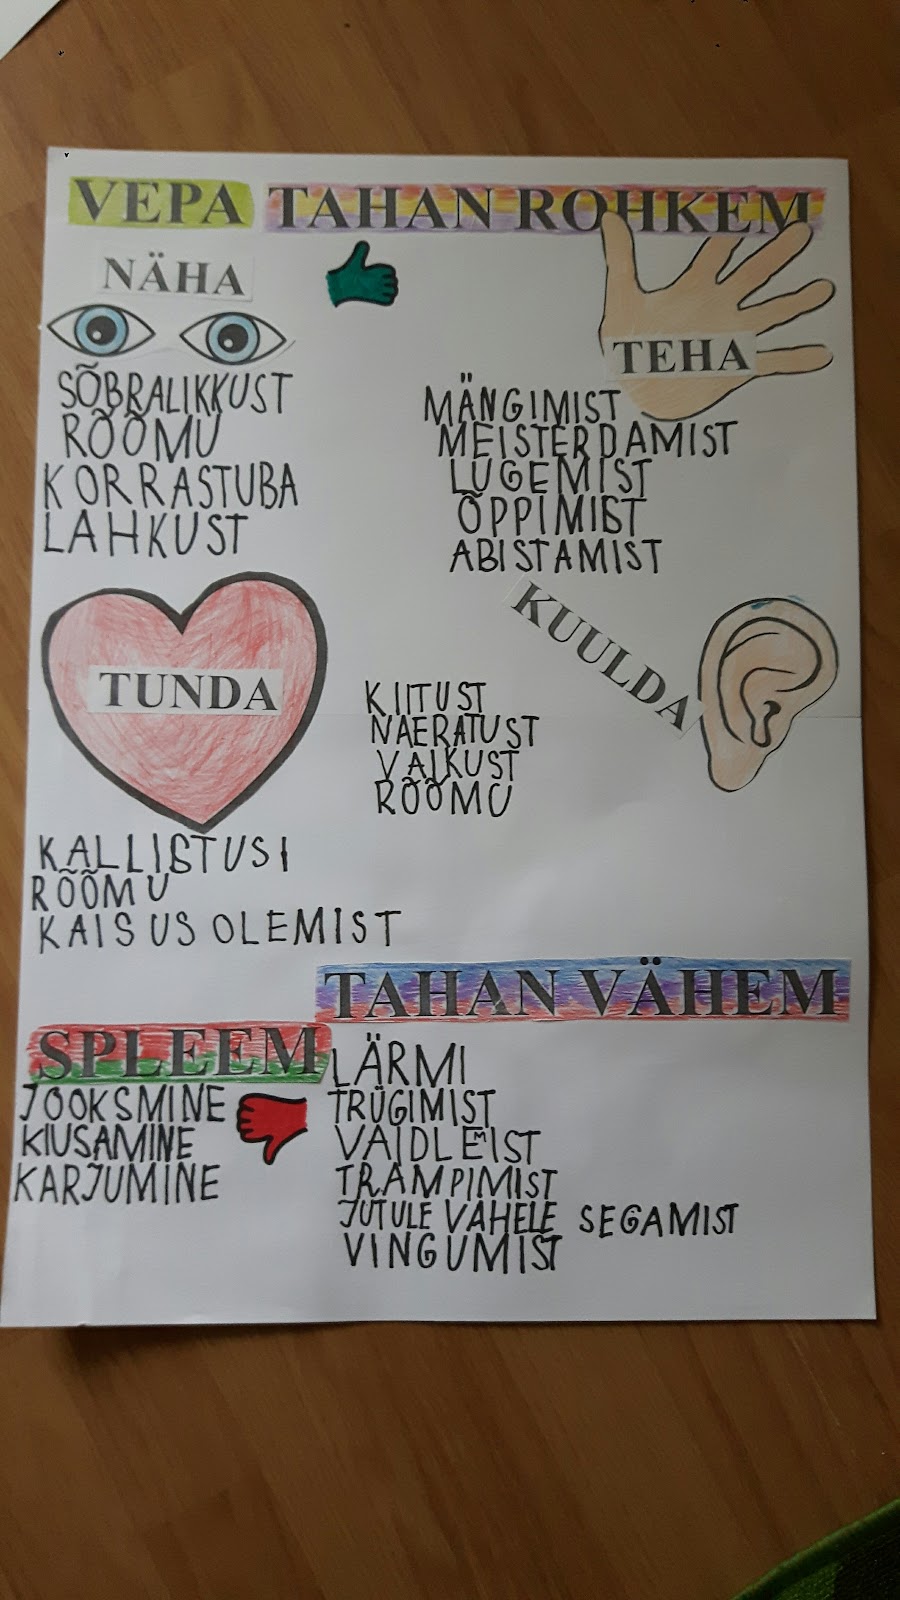 VEPA TAHAN ROHKEM
NÄHA
SÕBRALIKKUST
RÕÕMU
KORRASTUBA
LAHKUST
TEHA
MÄNGIMIST
MEISTERDAMIST
LUGEMIST
ÕPPIMIST
ABISTAMIST
TUNDA
KALLISTUSI
RÕÕMU
KAISUS OLEMIST
KUULDA
KIITUST
NAERATUST
VAIKUST
RÕÕMU
SPLEEM
JOOKSMINE
KIUSAMINE
KARJUMINE
TAHAN VÄHEM
LÄRMI
TRÜGIMIST
VAIDLEMIST
TRAMPIMIST
JUTULE VAHELE SEGAMIST
VINGUMIST